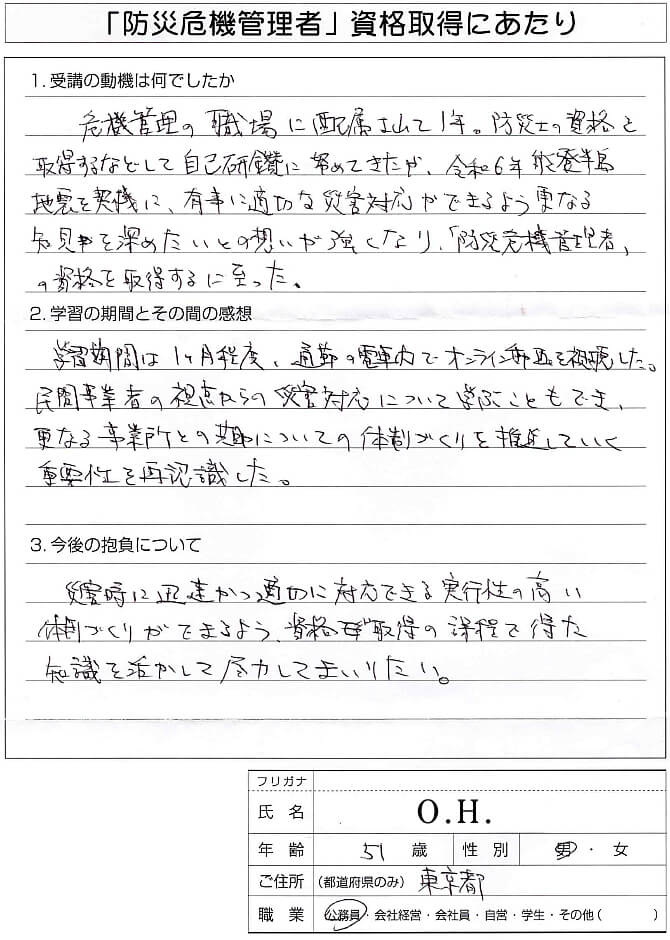 「防災危機管理者」資格取得にあたり
1.受講の動機は何でしたか
危機管理の職場に配属されて1年。防災士の資格を
取得するなどして自己研鑽に努めてきたが、令和6年能登半島
地震を契機に、有事に適切な災害対応ができるよう更なる
知見を深めたいとの想いが強くなり、「防災危機管理者」
の資格を取得するに至った。
2.学習の期間とその間の感想
学習期間は1ヶ月程度、通勤の電車内でオンライン動画を視聴した。
民間事業者の視点からの災害対応について学ぶこともでき、
更なる事業所との についての体制づくりを推進していく
重要性を再認識した。
3.今後の抱負について
災害時に迅速かつ適切に対応できる実行性の高い
体制づくりができるよう、資格取得の課程で得た
知識を活かして尽力してまいりたい。
フリガナ
氏名 O.H.
年齢 51 歳 性別 男・女
ご住所 (都道府県のみ) 東京都
職業 公務員・会社経営・会社員・自営・学生・その他( )